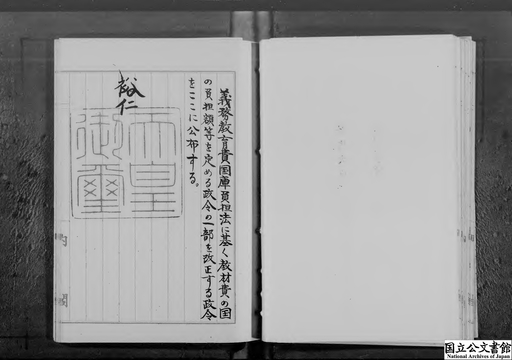 義務教育費国庫負担法に基く教材費の国
の負担額等を定める政令の一部を改正する政令
をここに公布する。
裕仁
天皇
御璽
国立公文書館
National Archives of Japan